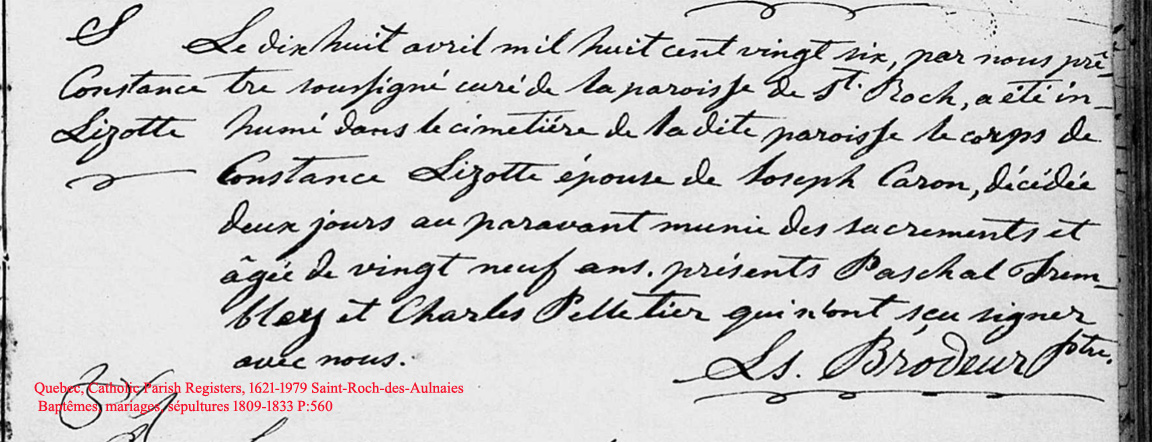 S
Constance
Lizotte
Le dix huit avril mil huit cent vingt six, par nous prê-
tre soussigné curé de la paroisse de St. Roch, a été in-
humé dans le cimetière de la dite paroisse le corps de
Constance Lizotte épouse de Joseph Caron, décédée
deux jours au paravant munie des sacrements et
âgée de vingt neuf ans. présents Paschal Trem-
bley et Charles Pelletier qui n'ont sçu signer
avec nous.
Ls. Brodeur ptre.
Quebec, Catholic Parish Registers, 1621-1979 Saint-Roch-des-Aulnaies
Baptêmes, mariages, sépultures 1809-1833 P:560